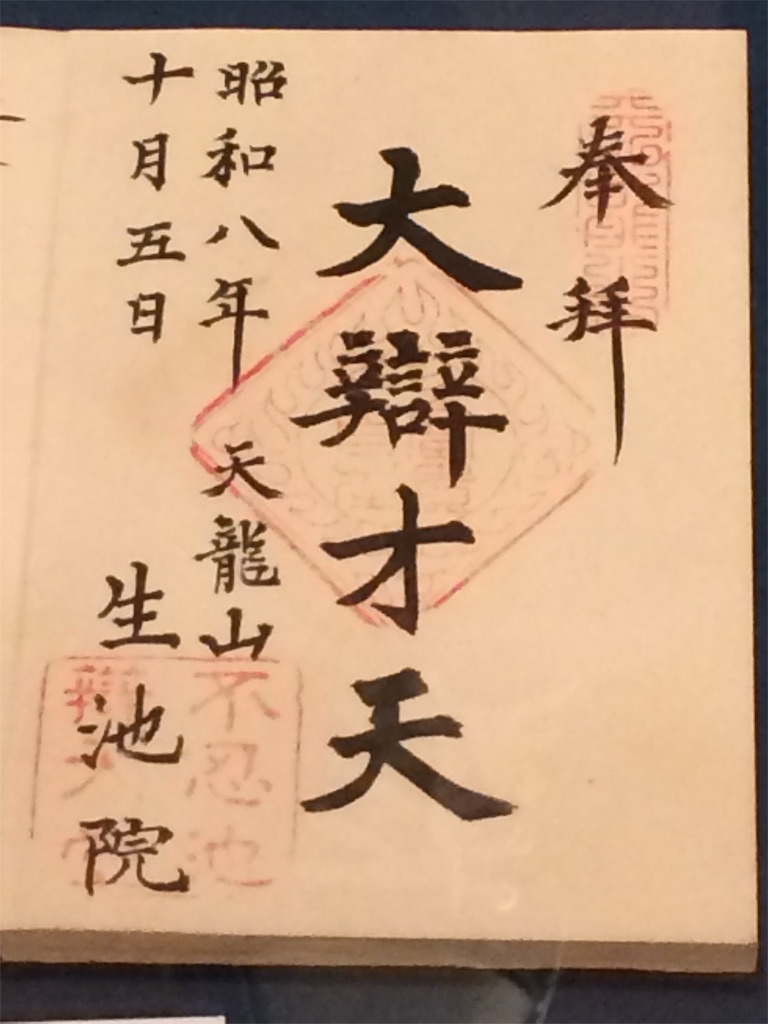 奉拜
大辯才天
昭和八年 天龍山
十月五日 生池院
不忍池
辯天堂